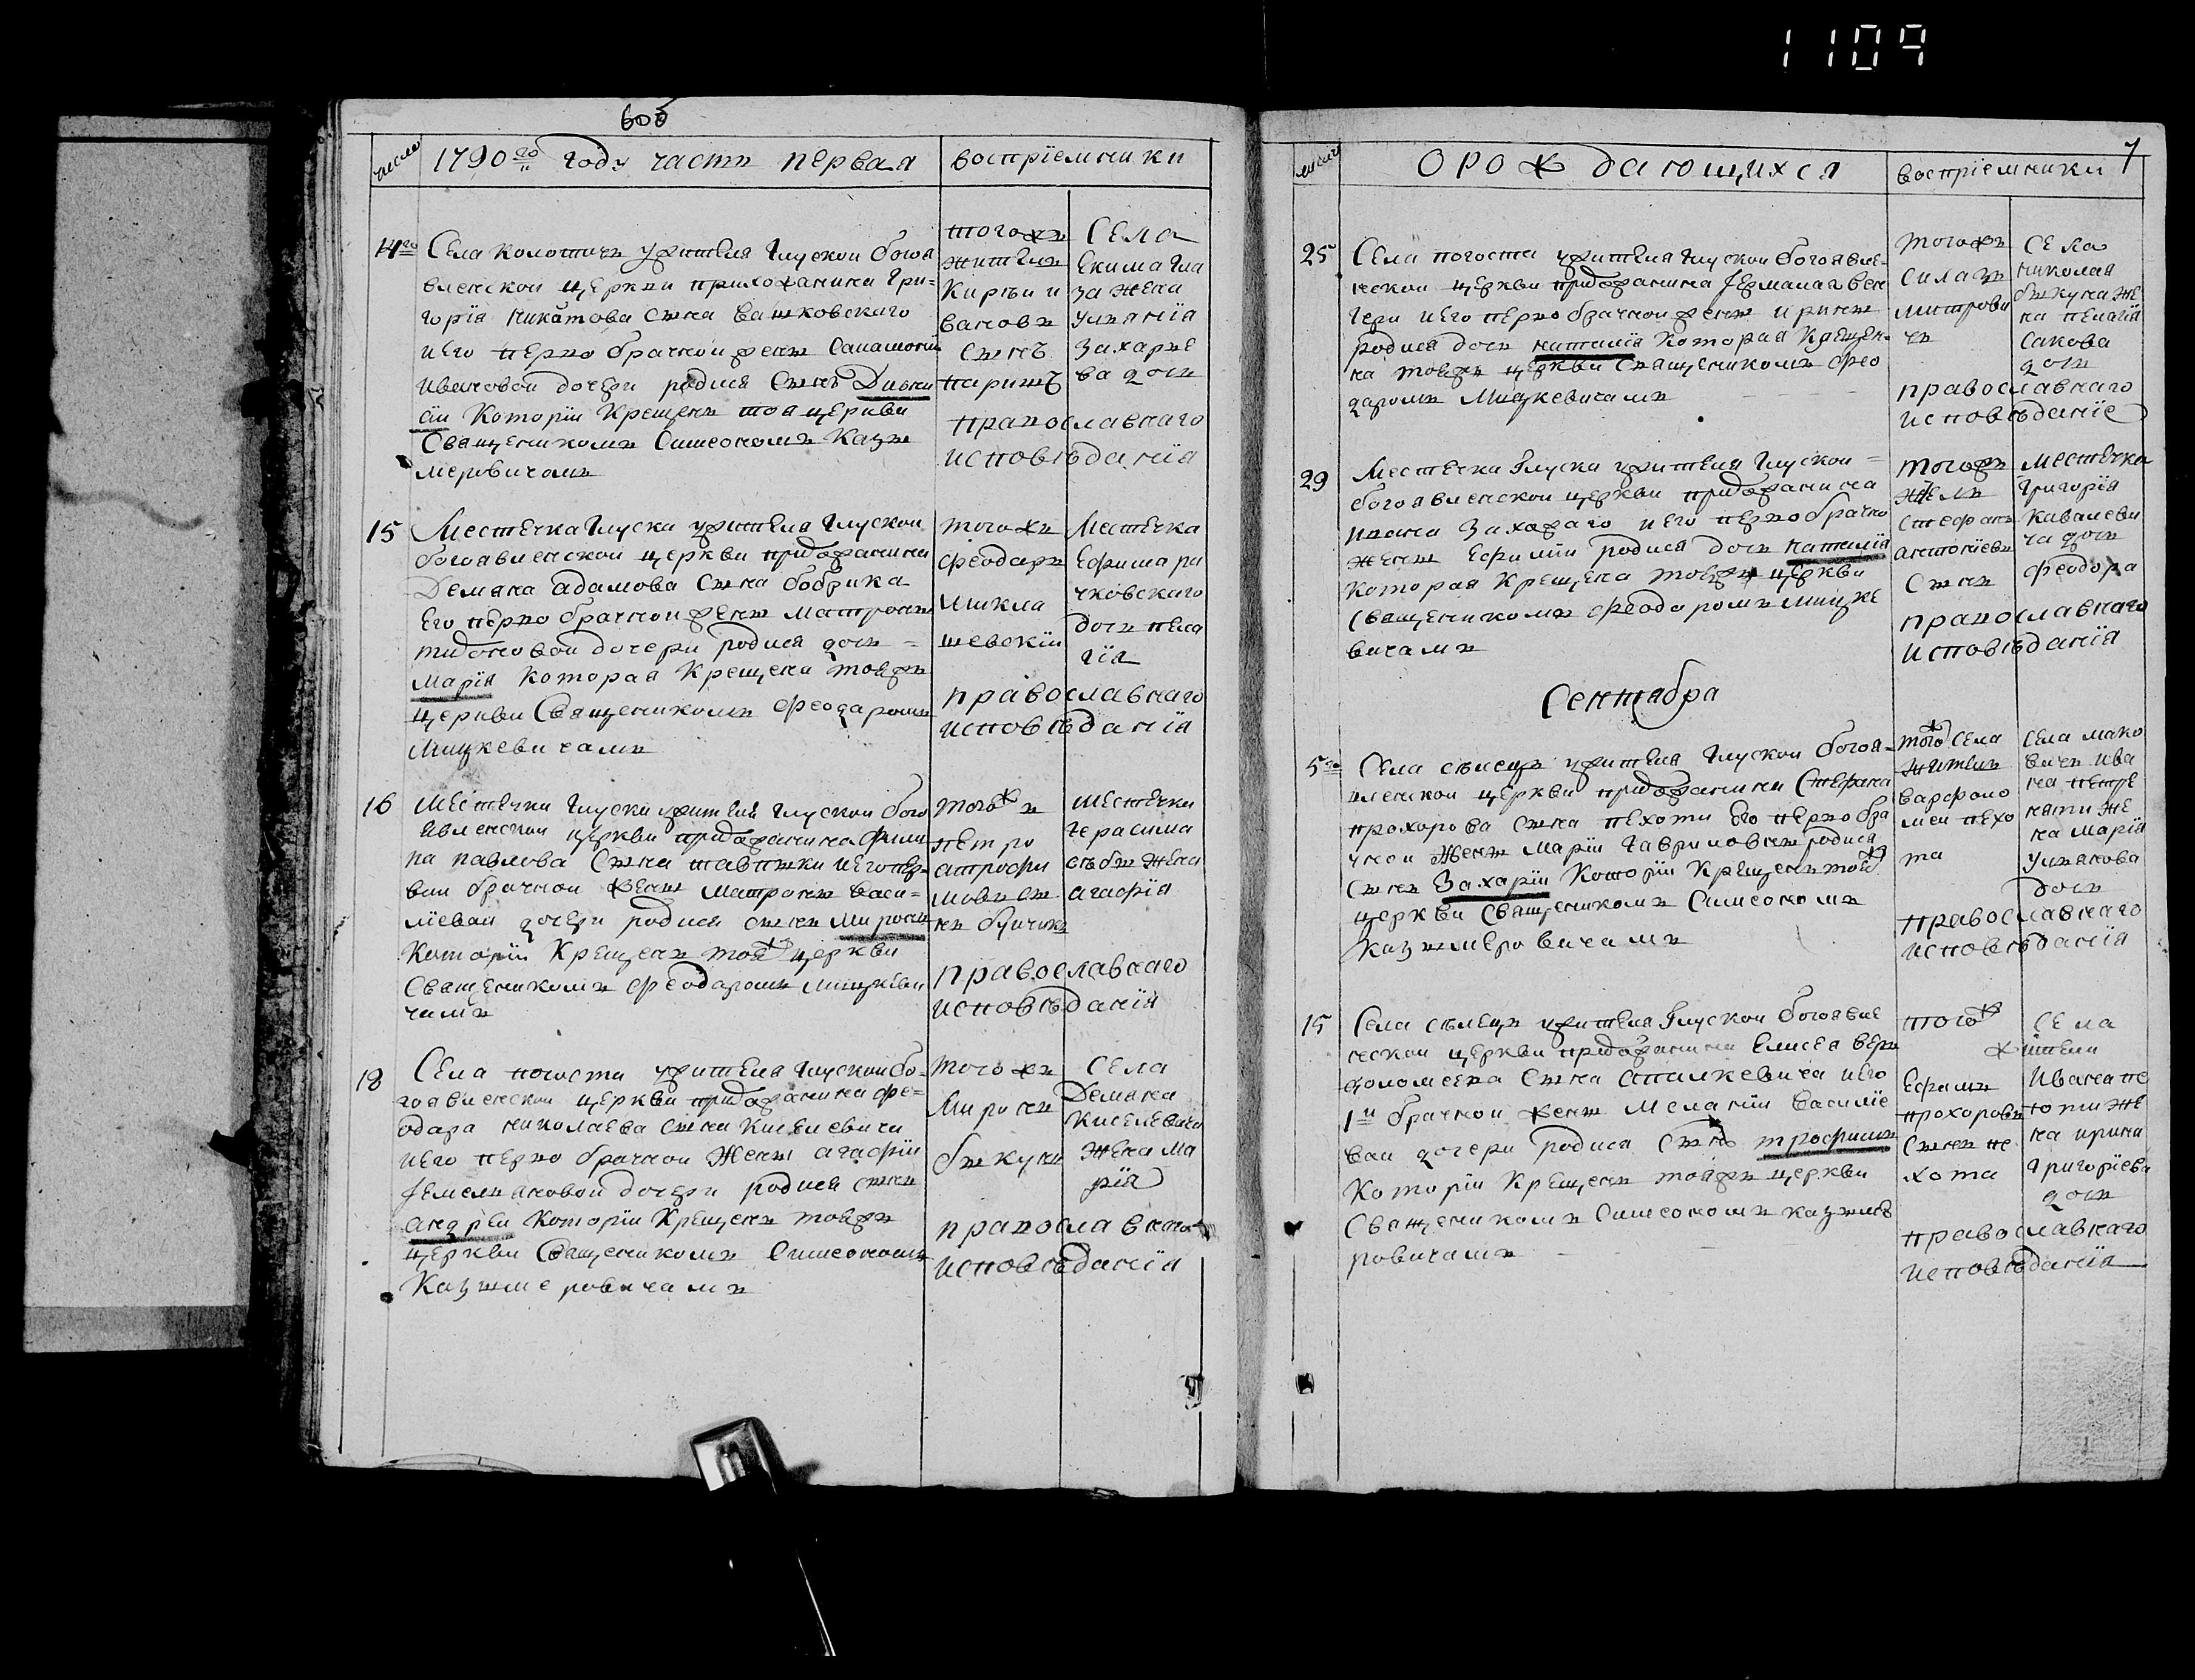 1109
605
число
1790го году части первая
воспрїемники
14го
Села Колотичъ жителя Глуской богоя
вленской церкви прихожанина Гри-
горїя сына Вашковского
и его перво брачной жены Саламонии
Ивановой дочери родися сынъ Диони
сїи Которїи Крещенъ тоя церкви
Священикомъ Симеономъ Казы
меровичамъ
тогожъ
жителъ
Кирѣи И
вановъ
сынъ
Села
Екима
за жена
Улянїя
Захарче
ва доч
православнаго
исповѣданїя
15
Местечка Глуска жителя Глуской
богоявленской церкви прихожанина
Демяна адамова сына бобрика
Его перво брачной жены Матроны
родися доч =
Марїя Которая Крещена тояжъ
церкви Священикомъ Феодаромъ
Мицкевичамъ
тогожъ
Феодаръ
Микла
шевскїи
Местечка
Ефима ра
чковского
дочъ Пела
гїя
православнаго
исповѣданїя
16
Местечки Глуски жителя Глуской бого
явленской церкви прихожанина Фили
па павлова сына и его пер-
вои брачной жены Матроны васи=
лїевои дочери родися сынъ Миронъ
Которїи Крещенъ тояжъ церкви
Священикомъ Феодаромъ Мицкеви
чамъ
тогожъ
петро
атрофи
мовъ сы
нъ
Местечки
герасима
жена
агафїя
православнаго
исповѣданїя
18
Села погоста жителя Глуской бо-
гоявленской церкви прихожанина Фе=
одара николаева сына Киселевича
и его перво брачной жены агафїи
Jемеляновой дочери родися сынъ
андреи Которїи Крещенъ тояжъ
церкви Священикомъ Симеономъ
Казымеровичамъ
тогожъ
Миронъ
быкунъ
Села
Демяна
Киселевича
жена Ма
рїя
православнаго
исповѣданїя
О РОЖдающихся
воспрїемники
7
25
Села погоста жителя Глуской богоявле-
нской церкви прихожанина
и его перво брачной жены ирины
родися дочъ наталїя Которая Крещен-
на тояжъ церкви Священикомъ Фео
даромъ Мицкевичамъ
тогожъ
сила
митрови
чъ
Села
николая
быкуна же
на пелагїя
сакова
дочъ
православнаго
исповѣданїе
29
Местечка Глуска жителя Глуской =
богоявленской церкви прихожанина
ивана и его перво брачно
жены Ефимїи родися дочъ наталїя
Которая Крещена тояжъ церкви
Священикомъ Феодоромъ Мицке
вичамъ
тогожъ
стефанъ
антонїевъ
сынъ
местечка
Григорїя
Кавалеви
ча дочъ
Феодора
православнаго
исповѣданїя
Сентября
5го
Села сѣлецъ жителя Глуской богоя-
вленской церкви прихожанина Стефана
прохорова сына пехоти Его перво бра
чной жены Марїи Гавриловны родися
сынъ Захарїи Которїи Крещенъ тояжъ
церкви Священикомъ Симеономъ
Казымеровичамъ
тогож села
жителъ
варфоло
меи пехо
та
села мако
вичъ ива
на петре
нати же
на марїя
улянова
дочъ
православнаго
исповѣданїя
15
Села сѣлецъ жителя Глуской богоявле
нской церкви прихожанина Елисея вер
ѳоломеева сына Апалкевича и его
1и брачной жены Меланїи Василїе
вои дочери родися сынъ трофимъ
Которїи Крещенъ тояжъ церкви
Священикомъ Симеономъ Казыме
ровичамъ
тогож
села
жители
Ефимъ
прохоровъ
сынъ пе
хота
Ивана пе
хоти же
на ирина
григорїева
дочъ
православнаго
исповѣданїя